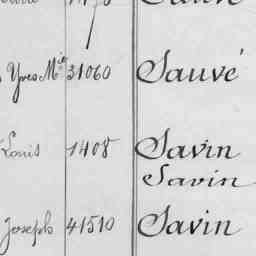 Yves Mie 31060 Sauvé
Louis 1408 Savin
Savin
Joseph 41510 Savin